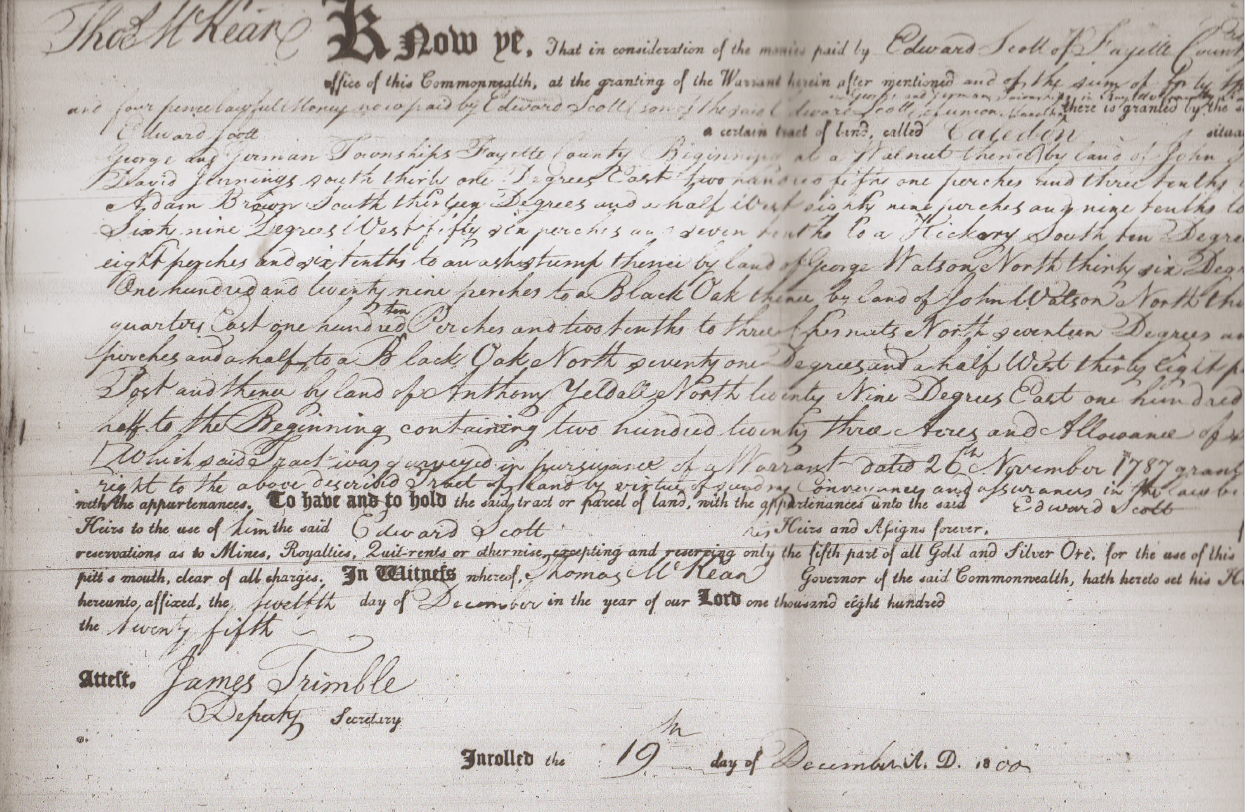 Thos. McKean
Know ye, That in consideration of the monies paid by Edward Scott of Fayette County
office of this Commonwealth, at the granting of the Warrant herein after mentioned and of the sum of
and four pence lawful Money now paid by Edward Scott (son of the said Edward Scott there is granted by the
Edward Scott a certain tract of land, called Caledon situa
George and German Townships Fayette County Beginning at a Walnut thence by land of John
David Jennings south thirty one Degrees East two hundred fifty one perches and three tenths
Adam Brown South thirteen Degrees and a half West eighty nine perches and nine tenths to
Sixty nine Degrees West fifty six perches and seven tenths to a Hickory South ten Degree
eight perches and six tenths to an ash stump thence by land of George Watson North thirty six Degr
One hundred and twenty nine perches to a Black Oak thence by land of John Watson North
quarters East one hundred ten Perches and two tenths to three Chesnuts North seventeen Degrees an
perches and a half to a Black Oak North seventy one Degrees and a half West thirty eight p
Post and thence by land of Anthony Yeldall North twenty Nine Degrees East one hundred
half to the Beginning containing two hundred twenty three Acres and Allowance of
(Which said Tract was surveyed in pursuance of a Warrant dated 26th November 1787 gran
right to the above described Tract of Land by virtue of sundry Conveyances and assurances in the law
with the appurtenances. To have and to hold the said tract or parcel of land, with the appurtenances unto the said Edward Scott
Heirs to the use of him the said Edward Scott his Heirs and Assigns forever,
reservations as to Mines, Royalties, Quit-rents or otherwise, excepting and reserving only the fifth part of all Gold and Silver Ore, for the use of this
pitt's mouth, clear of all charges. In Witness whereof, Thomas McKean Governor of the said Commonwealth, hath hereto set his H
hereunto, affixed, the twelfth day of December in the year of our Lord one thousand eight hundred
the twenty fifth
Attest. James Trimble
Deputy Secretary
Inrolled the 19th day of December A. D. 1800